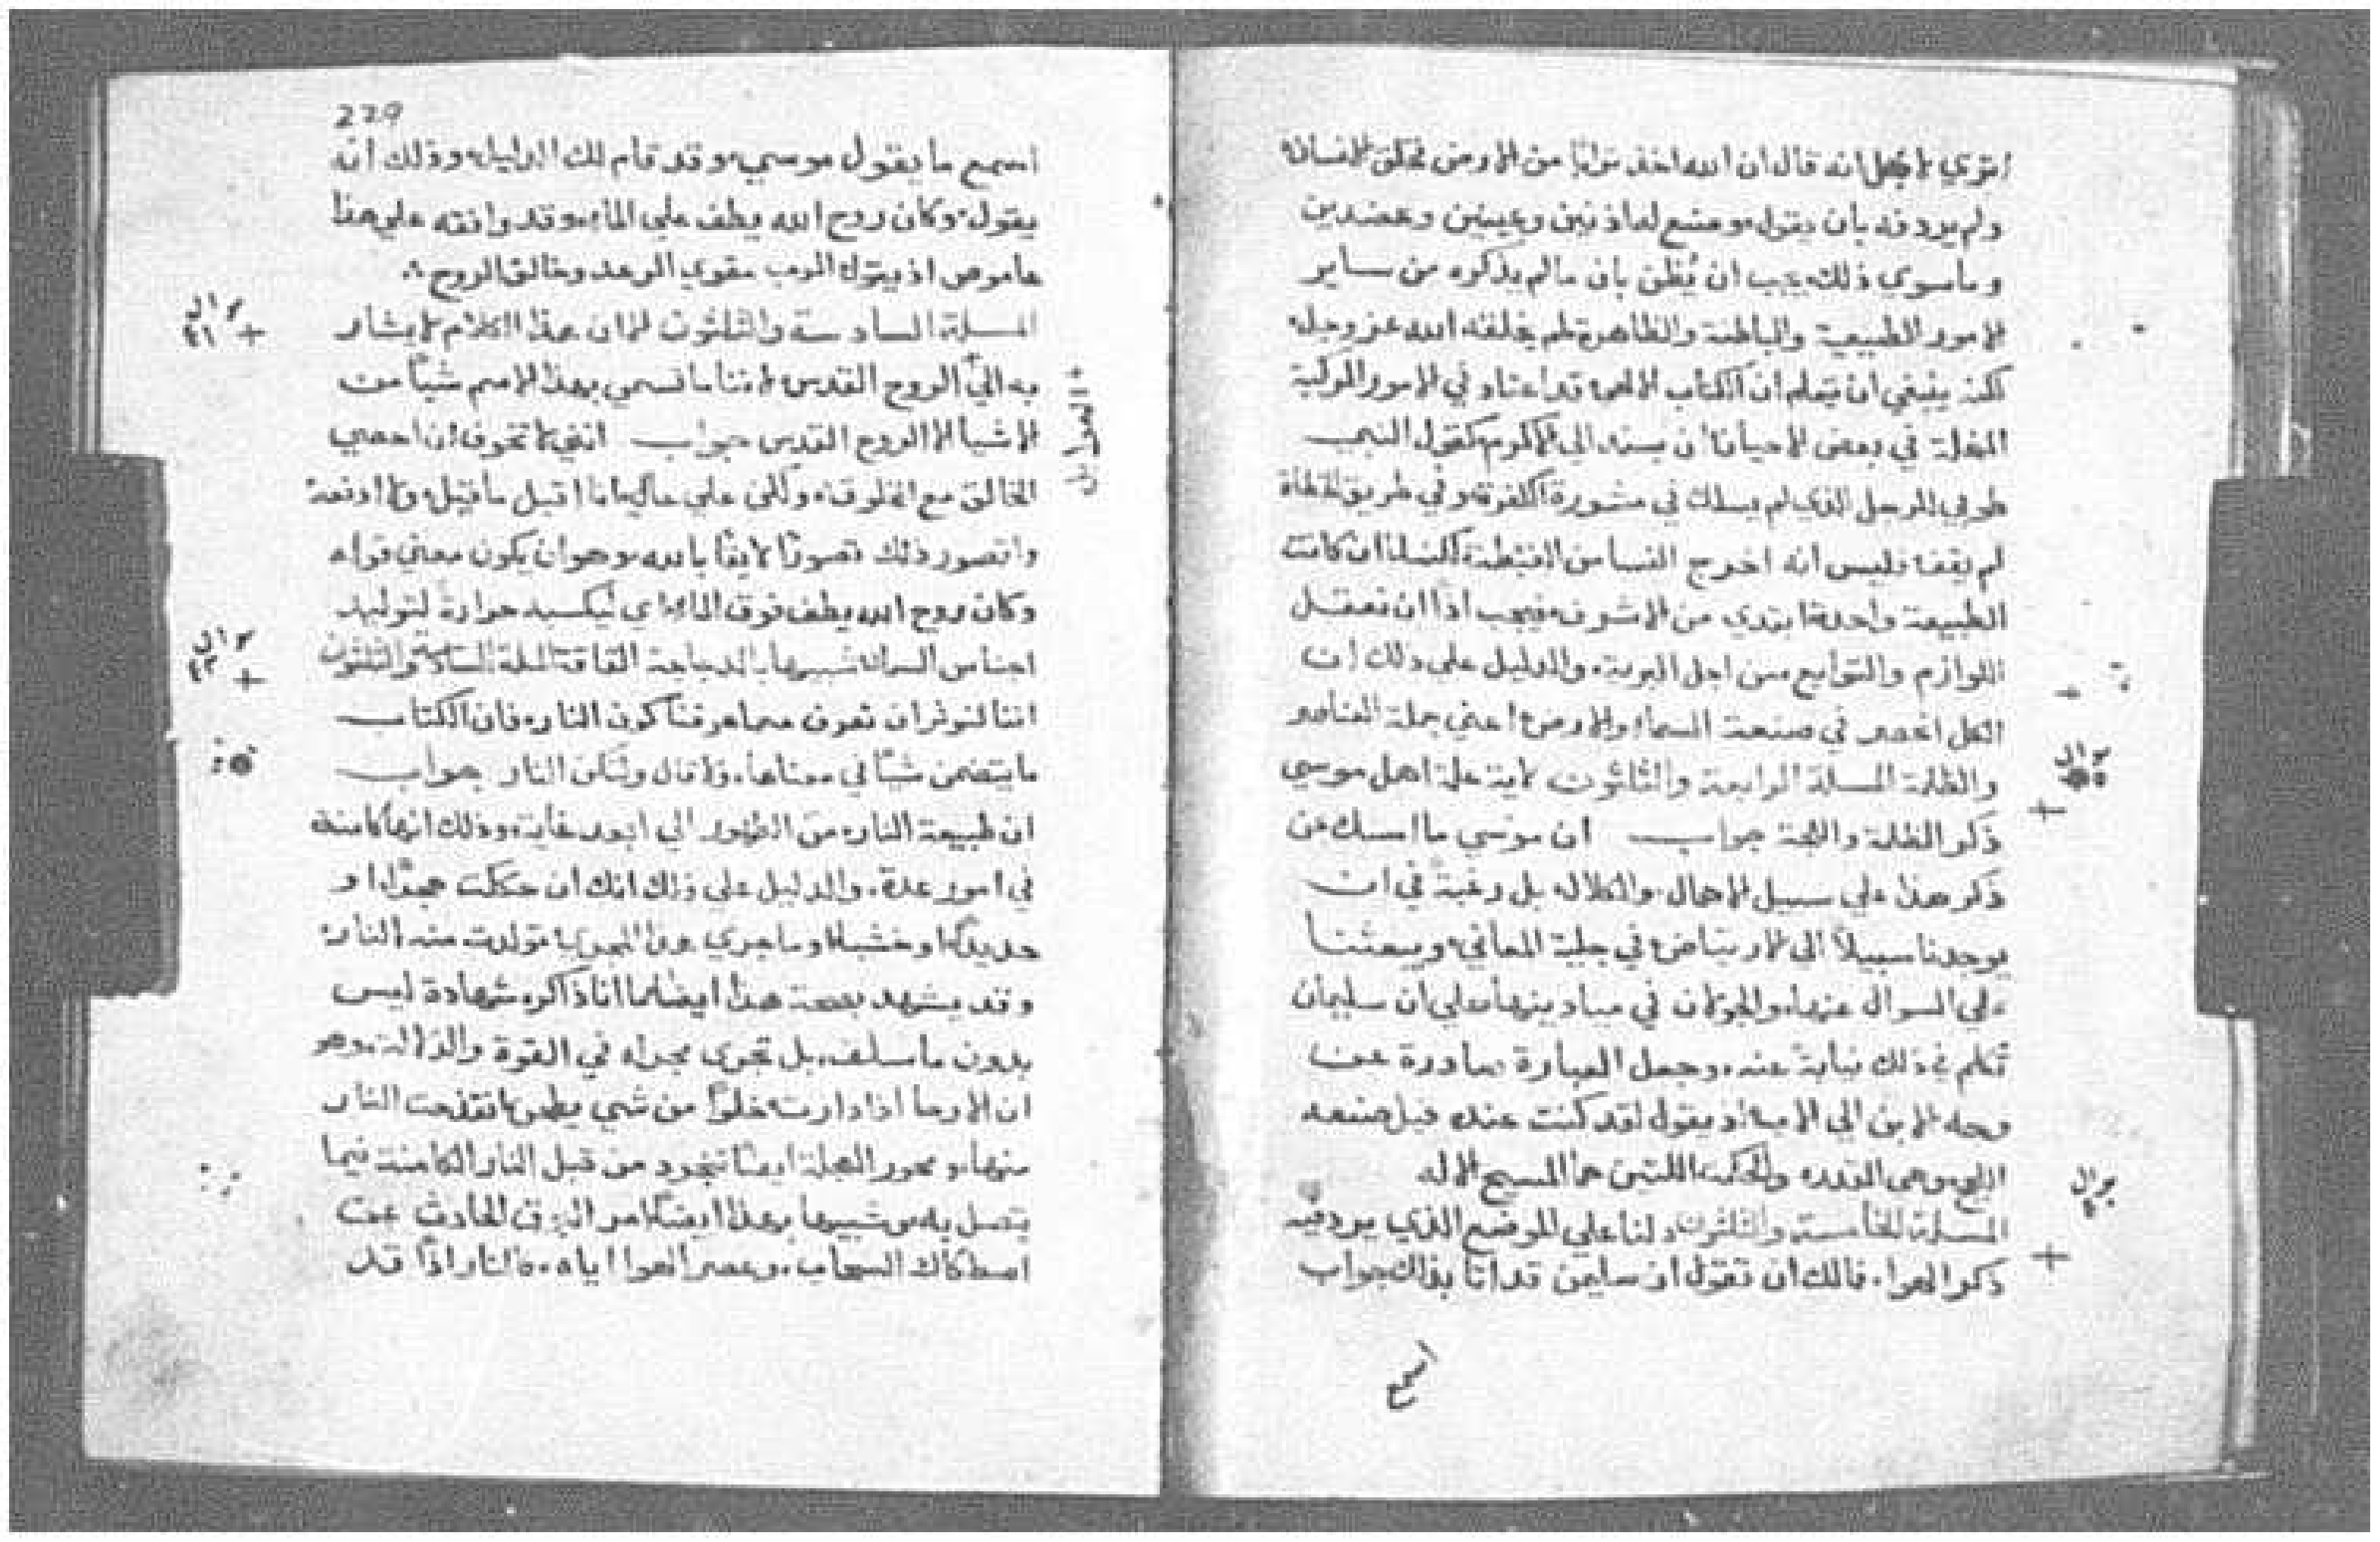 أترى لاجل انه قال ان الله اخذ ترابًا من الارض فخلق الانسان
ولم يردفه بأن يقول ووضع له اذنين وعينين وعضدين
وما سوى ذلك يجب ان يُظن بان ما لم يذكره من ساير
الامور الطبيعية والباطنة والظاهرة لم يخلقه الله عز وجل
لكنه ينبغي ان يتعلم ان الكتاب الالهي قد اعتاد في الامور المركبة
في بعض الاحيانا ان يسنه الى الاكرم كقول النبي
طوبى للرجل الذي لم يسلك في مشورة الكفرة وفي طريق الخطاة
لم يقف فليس انه اخرج النسا من الغبطة ان كانت
الطبيعة واحدة ابتدى من الاشرف فيجب اذًا ان تعقل
اللوازم والتوابع من اجل البرية والدليل على ذلك ان
الكل انحصر في صنعة السماء والارض اعني جملة العناصر
والظلمة المسلة الرابعة والثلثون لاية علة اهمل موسى
ذكر الظلمة واللجة جواب ان موسى ما امسك عن
ذكر هذا على سبيل الاهمال والكلال بل رغبةً في ان
يوجدنا سبيلاً الى الارتياض في جلية المعاني ويبعثنا
على السوال عنها والجولان في ميادينها على ان سليمان
تكلم في ذلك نيابةً عنه وجعل العبارة صادرة عن
وجه الابن الى الاب اذ يقول لقد كنت عنده قبل صنعه
وهي القدره والحكمة اللتين هما المسيح الاله
المسلة الخامسة والثلثون دلنا على الموضع الذي يرد فيه
ذكر الهوا فالك ان تقول ان سليمن قد اتا بذلك جواب
اسمع
سوال
سوال
229
اسمع ما يقول موسى وقد قام لك الدليل وذلك انه
يقول وكان روح الله يطف على الماء وقد وافقه على هذا
عاموص اذ يقول الرب مقوي الرعد وخالق الروح
المسلة السادسة والثلثون ان هذا الكلام لا يشار
به الى الروح القدس لاننا ما نسمي بهذا الاسم شيًا من
الاشيا الا الروح القدس جواب انني لا تخوف ان احصي
الخالق مع المخلوق ولكن على حال انا اقبل ما قيل ولا ادفعه
واتصور ذلك تصورًا لايقًا بالله وهو ان يكون معنى قوله
وكان روح الله يطف فوق الماء اي ليكسبه حرارة لتوليد
اجناس السمك شبيهًا بالدجاجة القاقة المسلة السادسة والثلثون
اننا لنوثر ان نعرف مما عرفنا كون النار فان الكتاب
ما يتضمن شيًا في معناها ولا قال ولتكن النار جواب
ان طبيعة النار من الظهور الى ابعد غاية وذلك انها كامنة
في امور عدة والدليل على ذلك انك ان حككت حجرًا او
حديدًا او خشبًا وما جرى هذا المجرى تولدت منه النار
وقد يشهد بصحة هذا ايضًا ما انا ذاكره شهادة ليس
بدون ما سلف بل تجرى مجراه في القوة والدلالة وهو
ان الارحا اذا دارت خلوًا من شي يطحن انقدحت النار
منها ومحور العجلة ايضًا من قبل النار الكامنة فيما
يتصل به وشبيها بهذا ايضًا امر البرق الحادث عن
اصطكاك السحاب وعصر الهوا اياه فالنار اذًا قد
سوال
٣٦
سوال